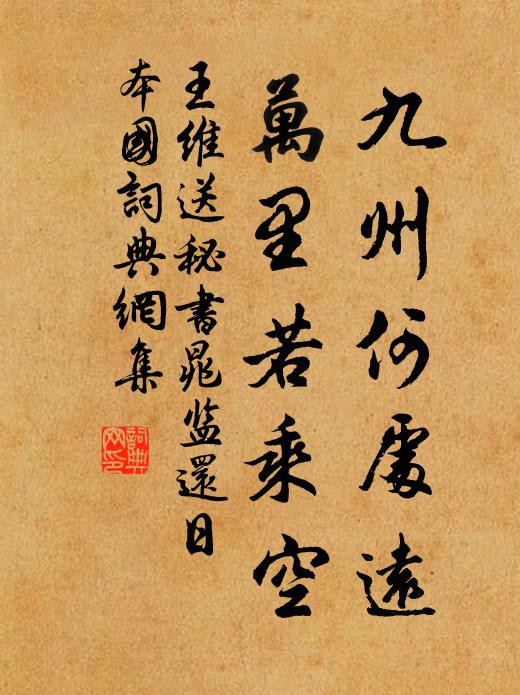 九州何處遠
萬里若乘空
王維送秘書晁監還日
本國詞典網集
詞典
網印